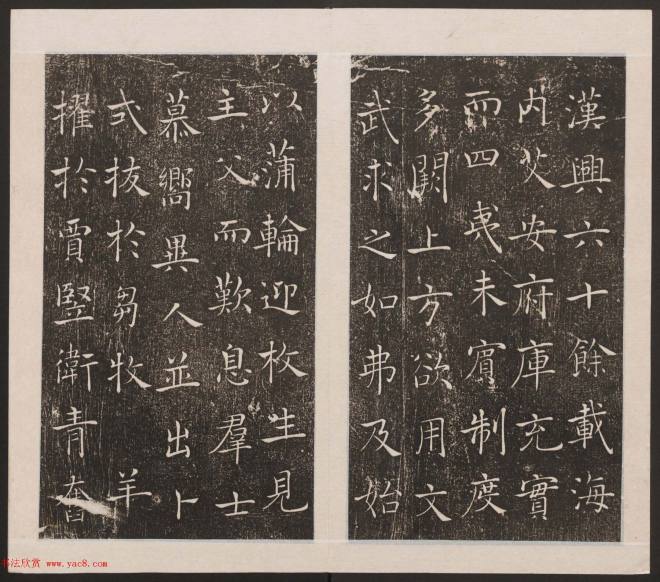 漢興六十餘載海
内艾安府庫充實
而四夷未賓制度
多闕上方欲用文
武求之如弗及始
以蒲輪迎枚生見
主父而歎息羣士
慕嚮異人並出卜
式拔於芻牧 羊
擢於賈豎衛青奮
书法欣赏 www.yac8.com